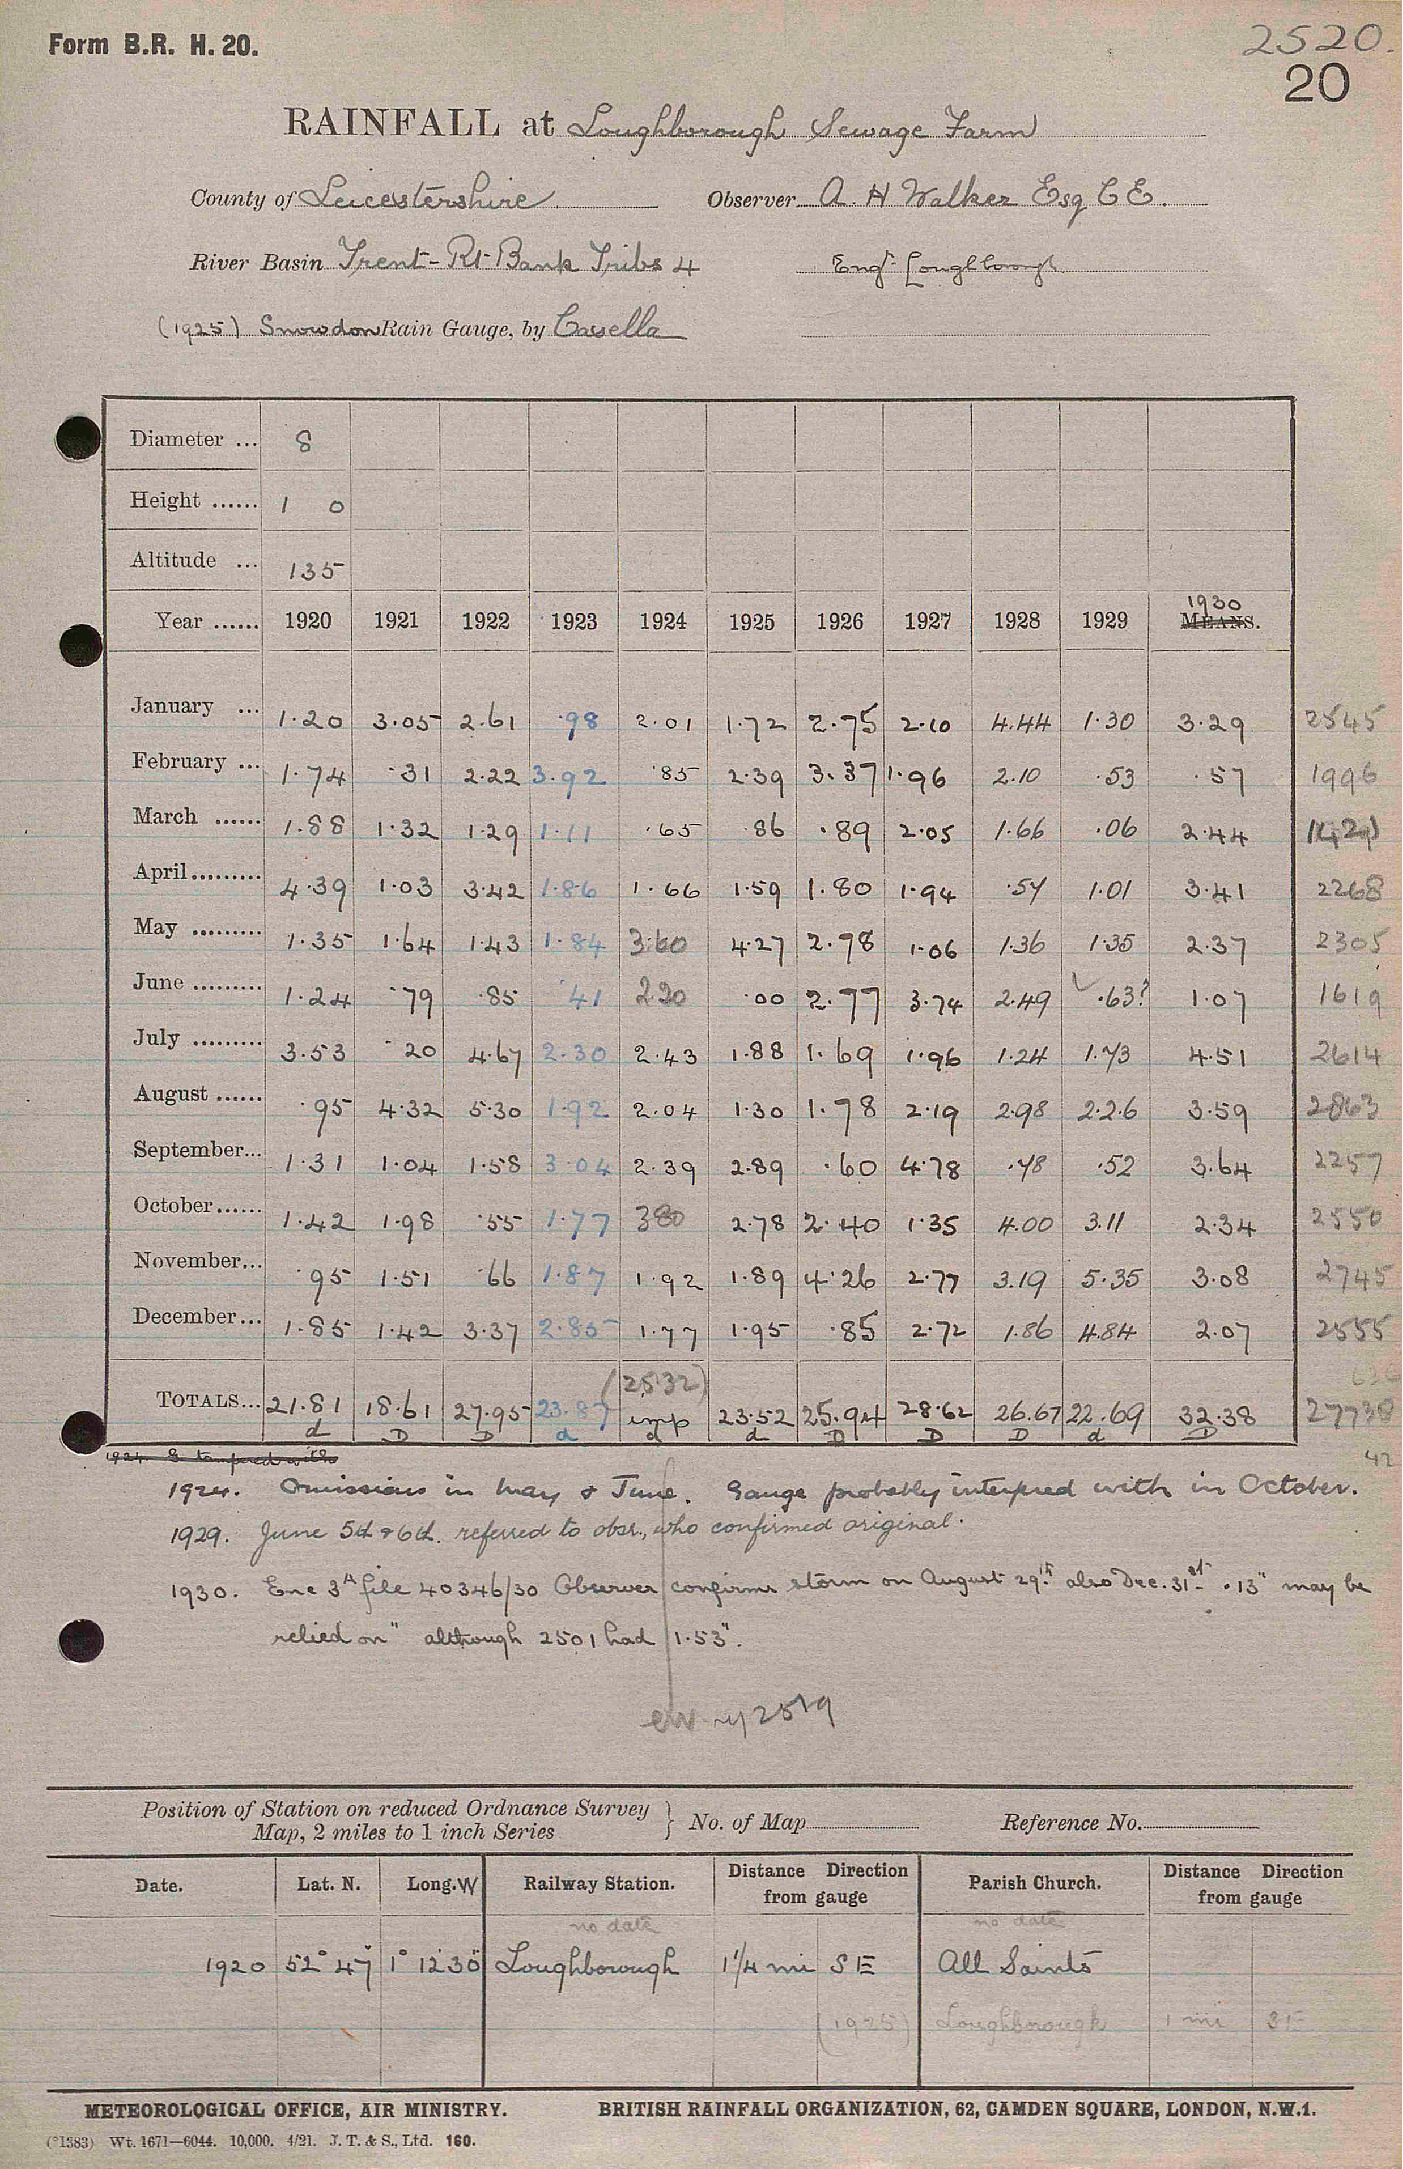 Form B.R. H. 20.
2520.
20
RAINFALL at Loughborough Sewage Farm
County of Leicestershire Observer A. H Walker Esq C E.
River Basin Trent - Rt Bank Tribs 4 Engr. Loughborough
(1925) Snowdon Rain Gauge, by Casella
Diameter ... 8
Height ...... 1 0
Altitude ... 135
Year ...... 1920 1921 1922 1923 1924 1925 1926 1927 1928 1929 1930 MEANS.
January ... 1.20 3.05 2.61 .98 2.01 1.72 2.75 2.10 4.44 1.30 3.29 2545
February ... 1.74 .31 2.22 3.92 .85 2.39 3.37 1.96 2.10 .53 .57 1996
March ...... 1.88 1.32 1.29 1.11 .65 .86 .89 2.05 1.66 .06 2.44 1421
April ......... 4.39 1.03 3.42 1.86 1.66 1.59 1.80 1.94 .57 1.01 3.41 2268
May ......... 1.35 1.64 1.43 1.84 3.60 4.27 2.78 1.06 1.36 1.35 2.37 2305
June ......... 1.24 .79 .85 .41 220 .00 2.77 3.74 2.49 .63? 1.07 1619
July ......... 3.53 .20 4.67 2.30 2.43 1.88 1.69 1.96 1.24 1.73 4.51 2614
August ...... .95 4.32 5.30 1.92 2.04 1.30 1.78 2.19 2.98 2.26 3.59 2863
September... 1.31 1.04 1.58 3.04 2.39 2.89 .60 4.78 .78 .52 3.64 2257
October ...... 1.42 1.98 .55 1.77 380 2.78 2.40 1.35 4.00 3.11 2.34 2550
November... .95 1.51 .66 1.87 1.92 1.89 4.26 2.77 3.19 5.35 3.08 2745
December... 1.85 1.42 3.37 2.85 1.77 1.95 .85 2.72 1.86 4.84 2.07 2555
(2532)
TOTALS... 21.81 18.61 27.95 23.87 imp 23.52 25.94 28.62 26.67 22.69 32.38 27738
d D D d d d D D D d D
1924. 8 tampered with
42
1924. Omissions in May & June. Gauge probably interfered with in October.
1929. June 5th & 6th. referred to obsr., who confirmed original.
1930. Enc 3A file 40346/30 Observer confirms storm on August 29th also Dec. 31st .13" may be
relied on" although 2501 had 1.53".
2519
Position of Station on reduced Ordnance Survey
Map, 2 miles to 1 inch Series } No. of Map Reference No.
Date. Lat. N. Long. W Railway Station. Distance Direction from gauge Parish Church. Distance Direction from gauge
no date no date
1920 52° 47' 1° 12' 30" Loughborough 1 1/4 mi S E All Saints
(1925) Loughborough 1 mi SE
METEOROLOGICAL OFFICE, AIR MINISTRY. BRITISH RAINFALL ORGANIZATION, 62, CAMDEN SQUARE, LONDON, N.W.1.
(*1383) Wt. 1671—6044. 10,000. 4/21. J. T. & S., Ltd. 160.